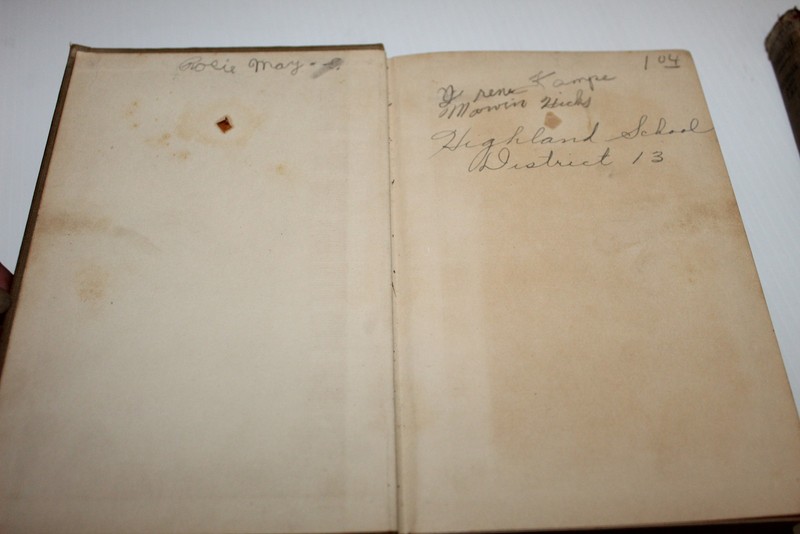 Rosie May
1 04
Irene Kampe
Marvin Hicks
Highland School
District 13